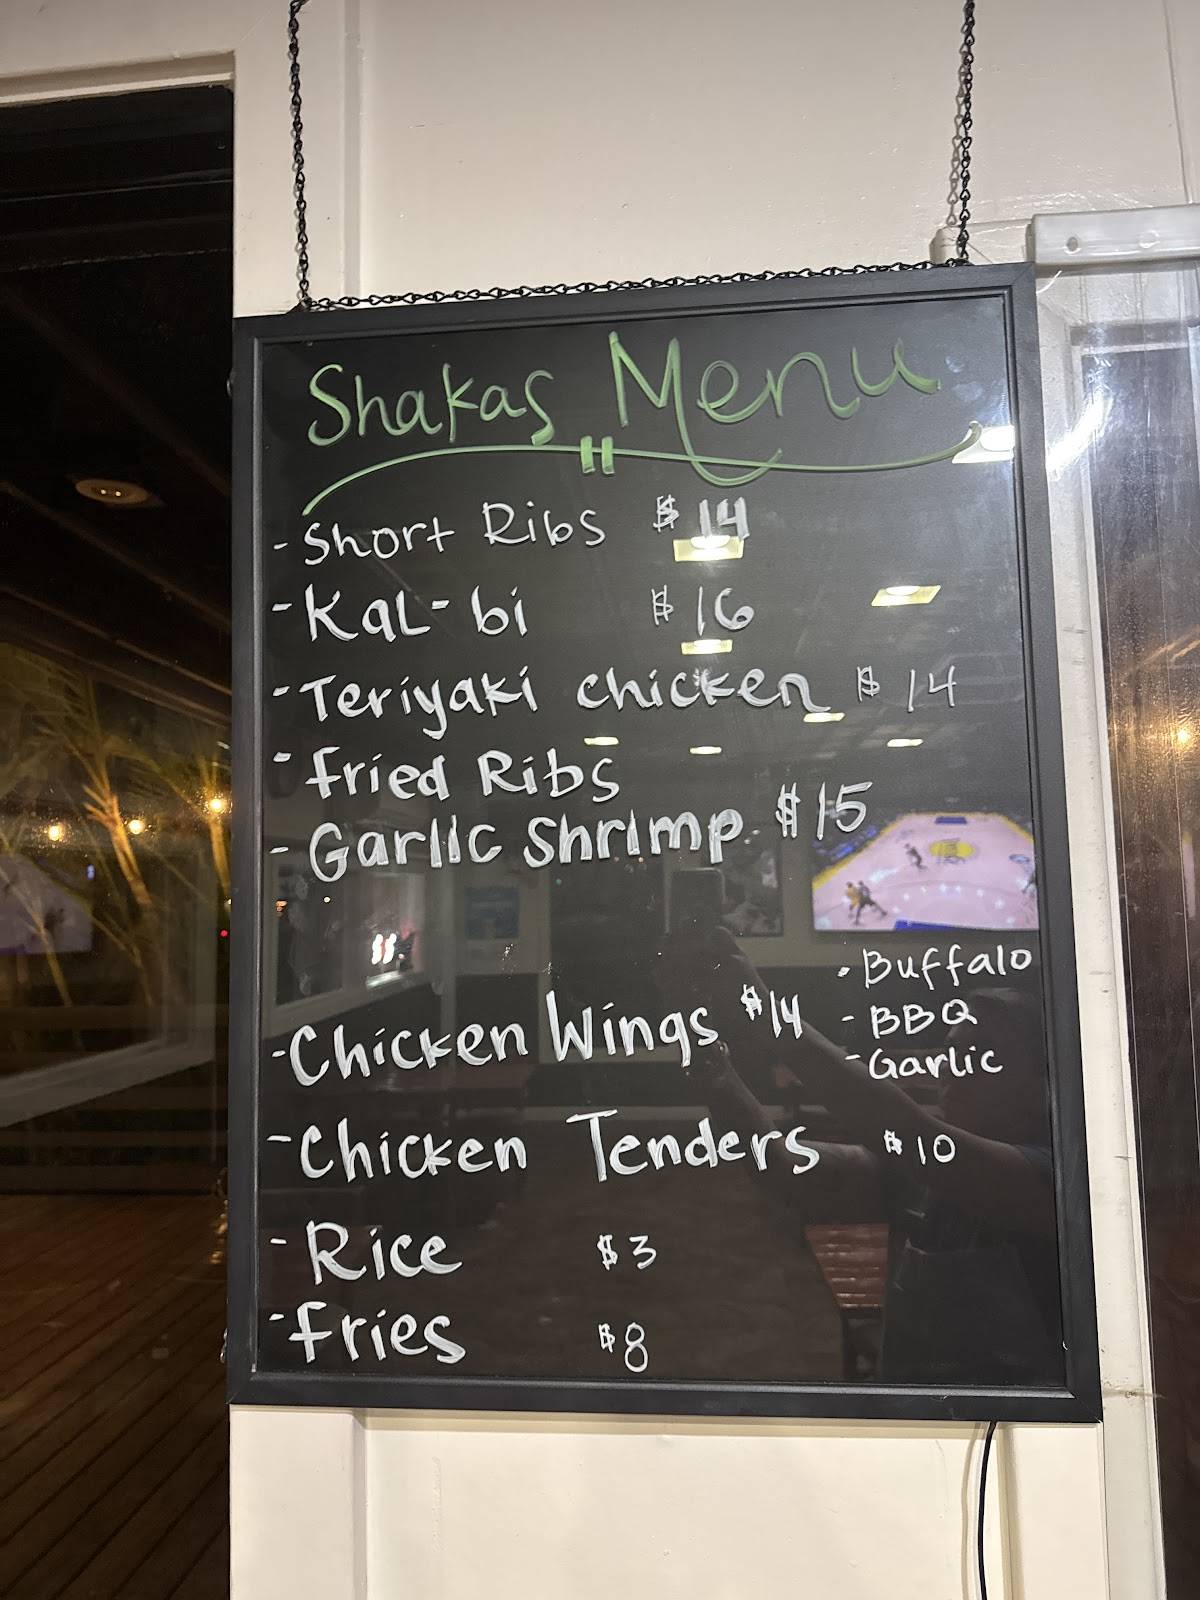 Shakas Menu
- Short Ribs $14
- Kal-bi $16
- Teriyaki chicken $14
- fried Ribs
- Garlic Shrimp $15
- Chicken Wings $14
- Buffalo
- BBQ
- Garlic
- Chicken Tenders $10
- Rice $3
- fries $8